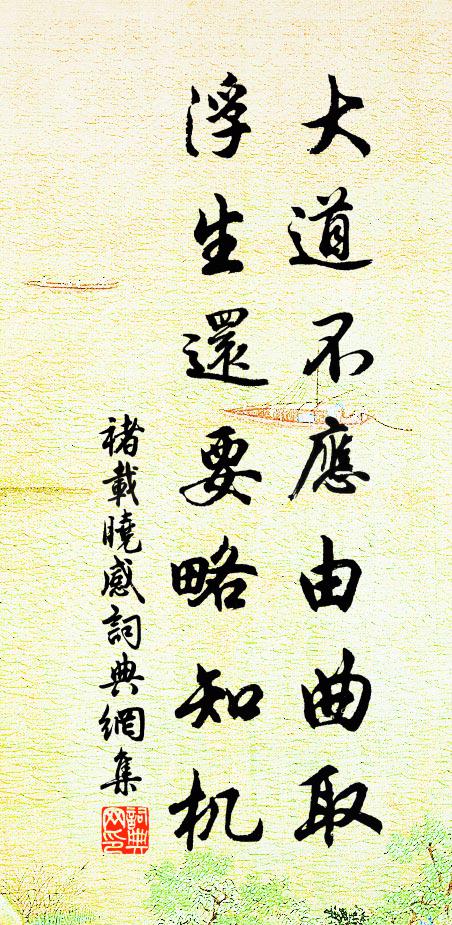 大道不應由曲取
浮生還要略知机
褚載曉感詞典網集
詞典网印